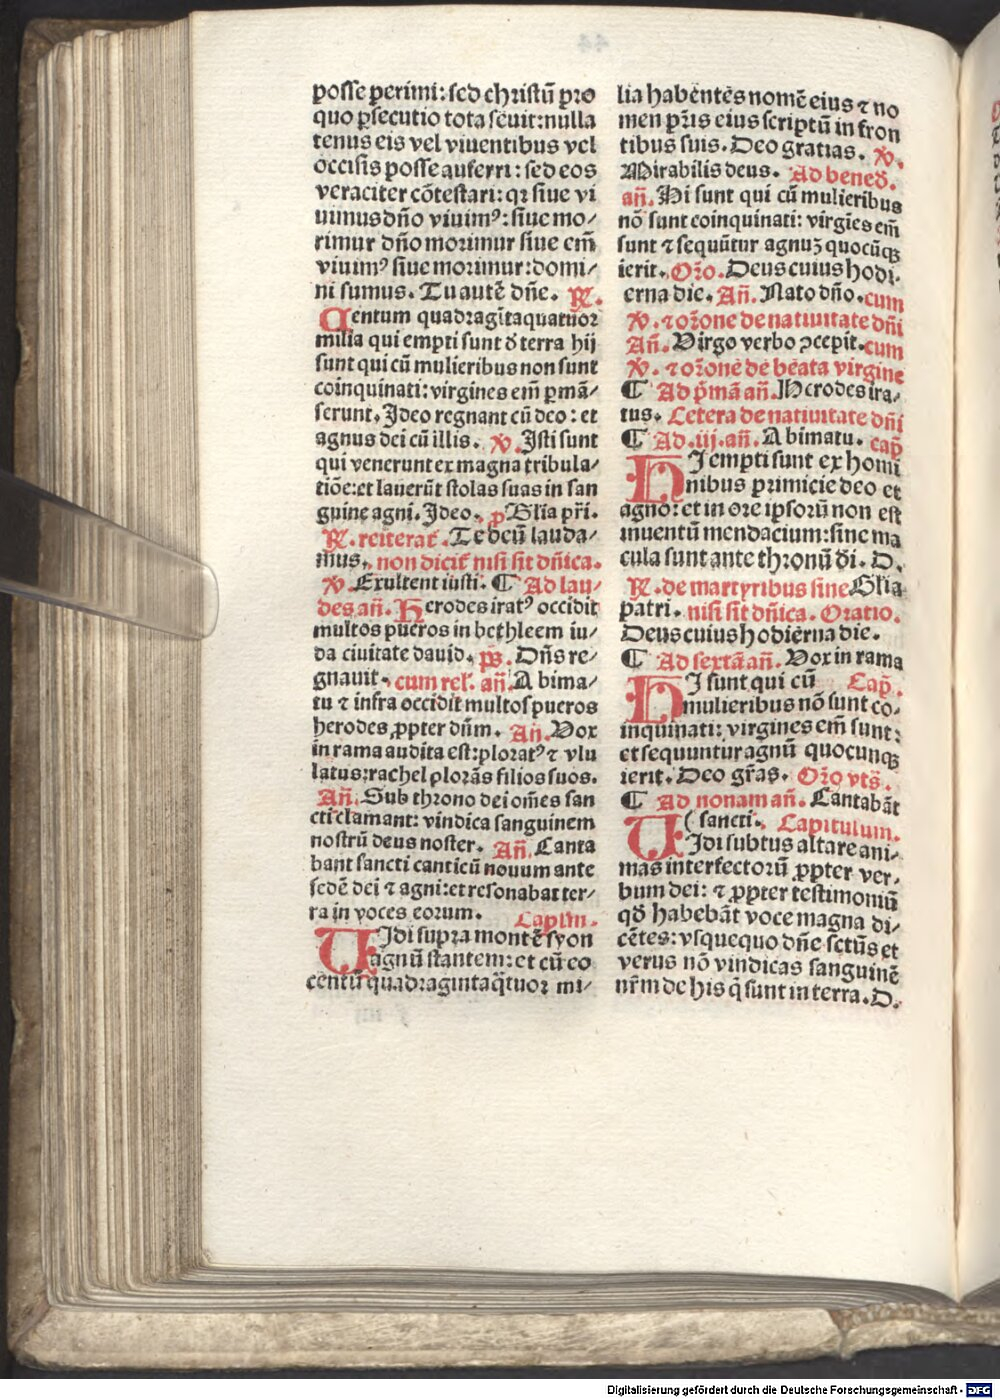 posse ꝑerimi: sed christū pro
quo ꝑsecutio tota seuit: nulla
tenus eis vel viuentibus vel
occisis posse auferri: sed eos
veraciter cōtestari: qꝛ siue vi
uimus dño viuimꝰ: siue mo⸗
rimur dño morimur siue em̄
viuimꝰ siue morimur: domi⸗
ni sumus. Tu autē dñe. ℟.
Centum quadragītaquatuor
milia qui empti sunt ð terra hij
sunt qui cū mulieribus non sunt
coinquinati: virgines em̄ ꝑmā⸗
serunt. Jdeo regnant cū deo: et
agnus dei cū illis. ℣. Jsti sunt
qui venerunt ex magna tribula⸗
tiōe: et lauerūt stolas suas in san
guine agni. Jdeo. ꝓ Glia pr̄i.
℟. reiterat᷑. Te deū lauda⸗
mus, non dicit᷑ nisi sit dñica.
℣ Exultent iusti. ¶ Ad lau⸗
des añ. Herodes iratꝰ occidit
multos pueros in bethleem iu⸗
da ciuitate dauid. p̄s. Dñs re⸗
gnauit. cum rel᷑. añ. A bima⸗
tu ⁊ infra occidit multos pueros
herodes ꝓpter dñm. Añ. Vox
in rama audita est: ploratꝰ ⁊ vlu
latus: rachel plorās filios suos.
Añ. Sub throno dei om̄es san
cti clamant: vindica sanguinem
nostrū deus noster. Añ. Canta
bant sancti canticū nouum ante
sedē dei ⁊ agni: et resonabat ter⸗
ra in voces eorum. Caplm̄.
VJdi supra montē syon
agnū stantem: et cū eo
centū quadragintaq̄tuor mi⸗
lia habentes nomē eius ⁊ no
men pr̄is eius scriptū in fron
tibus suis. Deo gratias. ℣.
Mirabilis deus. Ad bened̄.
añ. Hi sunt qui cū mulieribus
nō sunt coinquinati: virgīes em̄
sunt ⁊ sequūtur agnuꝫ quocūqꝫ
ierit. Or̄o. Deus cuius hodi⸗
erna die. Añ. Nato dño. cum
℣. ⁊ or̄one de natiuitate dñi
Añ. Virgo verbo ꝯcepit. cum
℣. ⁊ or̄onē de beata virgine
¶ Ad p̄mā añ. Herodes ira⸗
tus. Cetera de natiuitate dñi
¶ Ad .iij. añ. A bimatu. cap̄
HJ empti sunt ex homi
nibus primicie deo et
agno: et in ore ipsorū non est
inuentū mendacium: sine ma
cula sunt ante thronū d̄i. D.
℟. de martyribus sine Glia
patri. nisi sit dñica. Oratio.
Deus cuius hodierna die.
¶ Ad sextā añ. Vox in rama
HJ sunt qui cū Cap̄.
mulieribus nō sunt co⸗
inquinati: virgines em̄ sunt:
et sequuntur agnū quocunqꝫ
ierit. Deo gr̄as. Or̄o vts̄.
¶ Ad nonam añ. Cantabāt
( sancti. Capitulum.
VJdi subtus altare ani⸗
mas interfectorū ꝓpter ver⸗
bum dei: ⁊ ꝓpter testimoniū
qð habebāt voce magna di⸗
cētes: vsquequo dñe sctūs et
verus nō vindicas sanguinē
nr̄m de his q̄ sunt in terra. D.
Digitalisierung gefördert durch die Deutsche Forschungsgemeinschaft - DFG